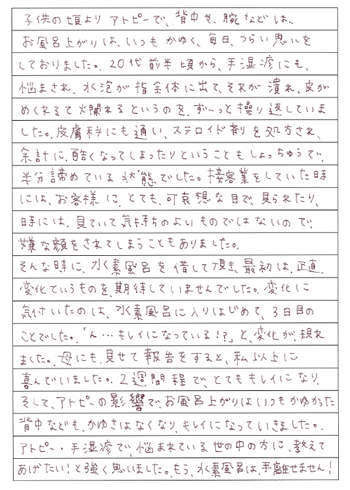 子供の頃よりアトピーで、背中や、腕などは、
お風呂上がりは、いつもかゆく、毎日、つらい思いを
しておりました。20代前半頃から、手湿疹にも、
悩まされ、水泡が指全体に出て、それが潰れ、皮が
めくれると爛れるというのを、ず〜っと繰り返していま
した。皮膚科にも通い、ステロイド剤を処方され、
余計に、酷くなってしまったりということもしょっちゅうで、
半分諦めている状態でした。接客業をしていた時
には、お客様に、とても、可哀想な目で、見られたり、
時には、見ていて気持ちのよいものではないので、
嫌な顔をされてしまうこともありました。
そんな時に、水素風呂を借して頂き、最初は、正直
変化というものを、期待していませんでした。変化に
気付いたのは、水素風呂に入りはじめて、3日目の
ことでした。「ん…キレイになっている!?」と、変化が、現れ
ました。母にも、見せて報告をすると、私以上に
喜んでいました。2週間程で、とてもキレイになり、
そして、アトピーの影響で、お風呂上がりはいつもかゆかった
背中なども、かゆさはなくなり、キレイになっていきました。
アトピー・手湿疹で、悩まれている世の中の方に、教えて
あげたい!と強く思いました。もう、水素風呂は、手離せません!